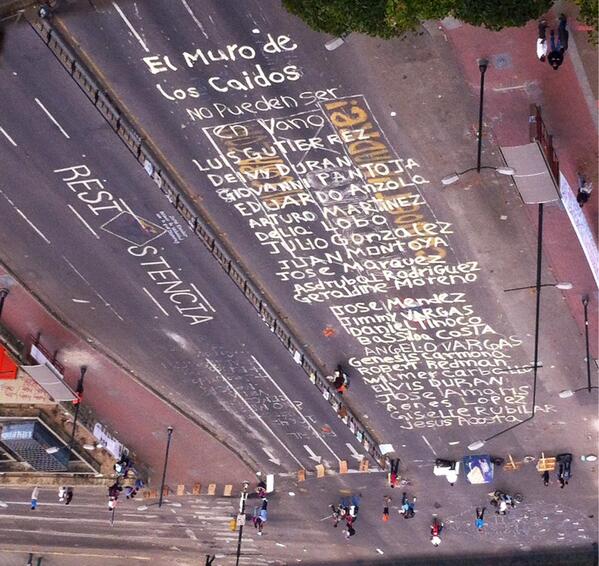 El Muro de
los Caidos
NO Pueden Ser
en Vano
LUIS GUTIERREZ
DEIVY DURAN
GIOVANNI PANTOJA
EDUARDO Anzola
ARTURO MARTINEZ
Delia LOBO
JULIO Gonzalez
JUAN MONTOYA
JOSE Marquez
Asdrubal Rodriguez
Geraldine Moreno
JOSE Mendez
Jimmy VARGAS
Daniel TINOCO
Bassil DA COSTA
ANGELO VARGAS
Genesis carmona
Robert Redman
wilmer carballo
Elvis DURAN
Jose
LOPEZ
Giselle RUBILAR
Jesus Acosta
RESISTENCIA